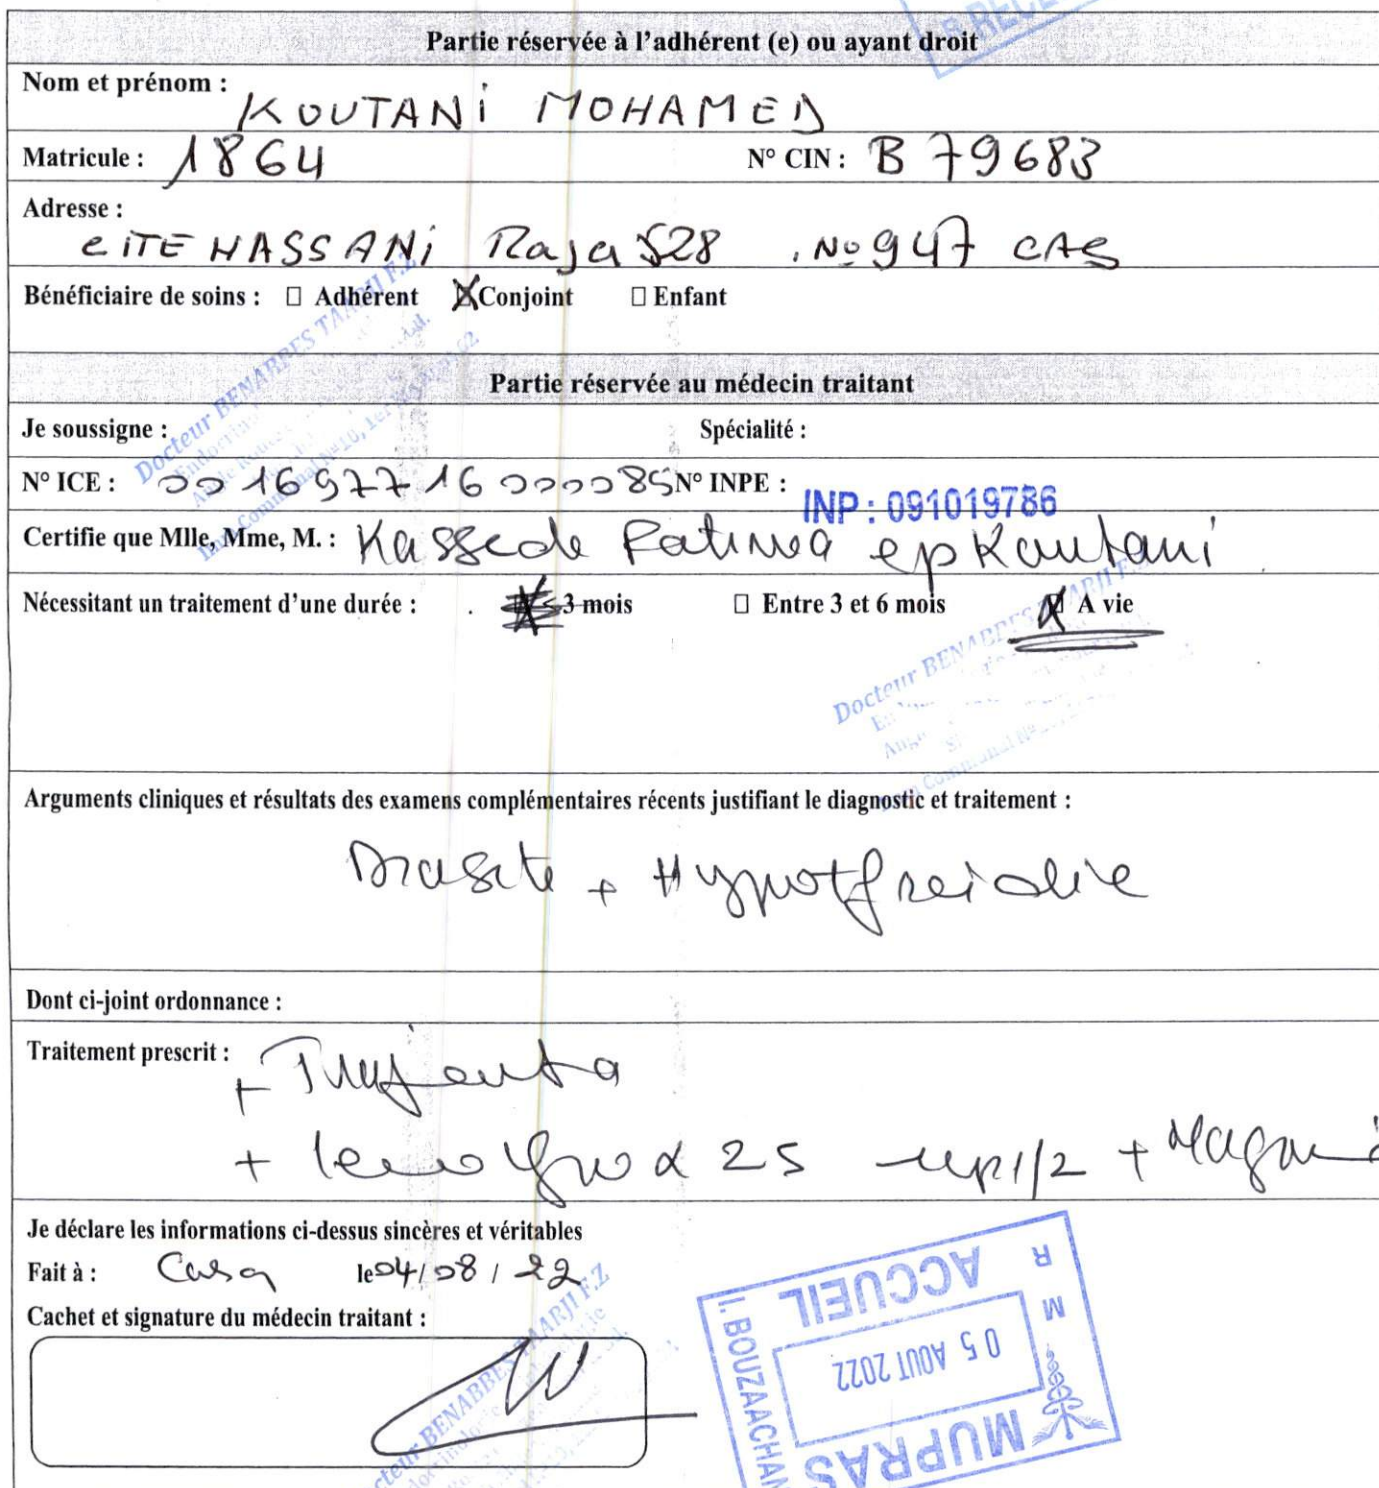 RECE
Partie réservée à l'adhérent (e) ou ayant droit
Nom et prénom : KOUTANI MOHAMED
Matricule : 1864 N° CIN : B 79683
Adresse :
CITE HASSANI Raja 528 . No 947 CAS
Bénéficiaire de soins : □ Adhérent ☒ Conjoint □ Enfant
Docteur BENABBES TAARJI F.Z
Partie réservée au médecin traitant
Je soussigne : Spécialité :
N° ICE : 001697716000085 N° INPE : INP : 091019786
Certifie que Mlle, Mme, M. : Kassede Fatima ep Koutani
Nécessitant un traitement d'une durée : ≤ 3 mois □ Entre 3 et 6 mois ☒ A vie
Docteur BENABBES TAARJI F.
Arguments cliniques et résultats des examens complémentaires récents justifiant le diagnostic et traitement :
+ Hypothyreoidie
Dont ci-joint ordonnance :
Traitement prescrit : + Trajenta
+ levothyrox 25 1/2 +
Je déclare les informations ci-dessus sincères et véritables
Fait à : Casa le 04/08/22
Cachet et signature du médecin traitant :
Docteur BENABBES TAARJI F.Z
MUPRAS
05 AOUT 2022
ACCUEIL
I. BOUZAACHAN
R M